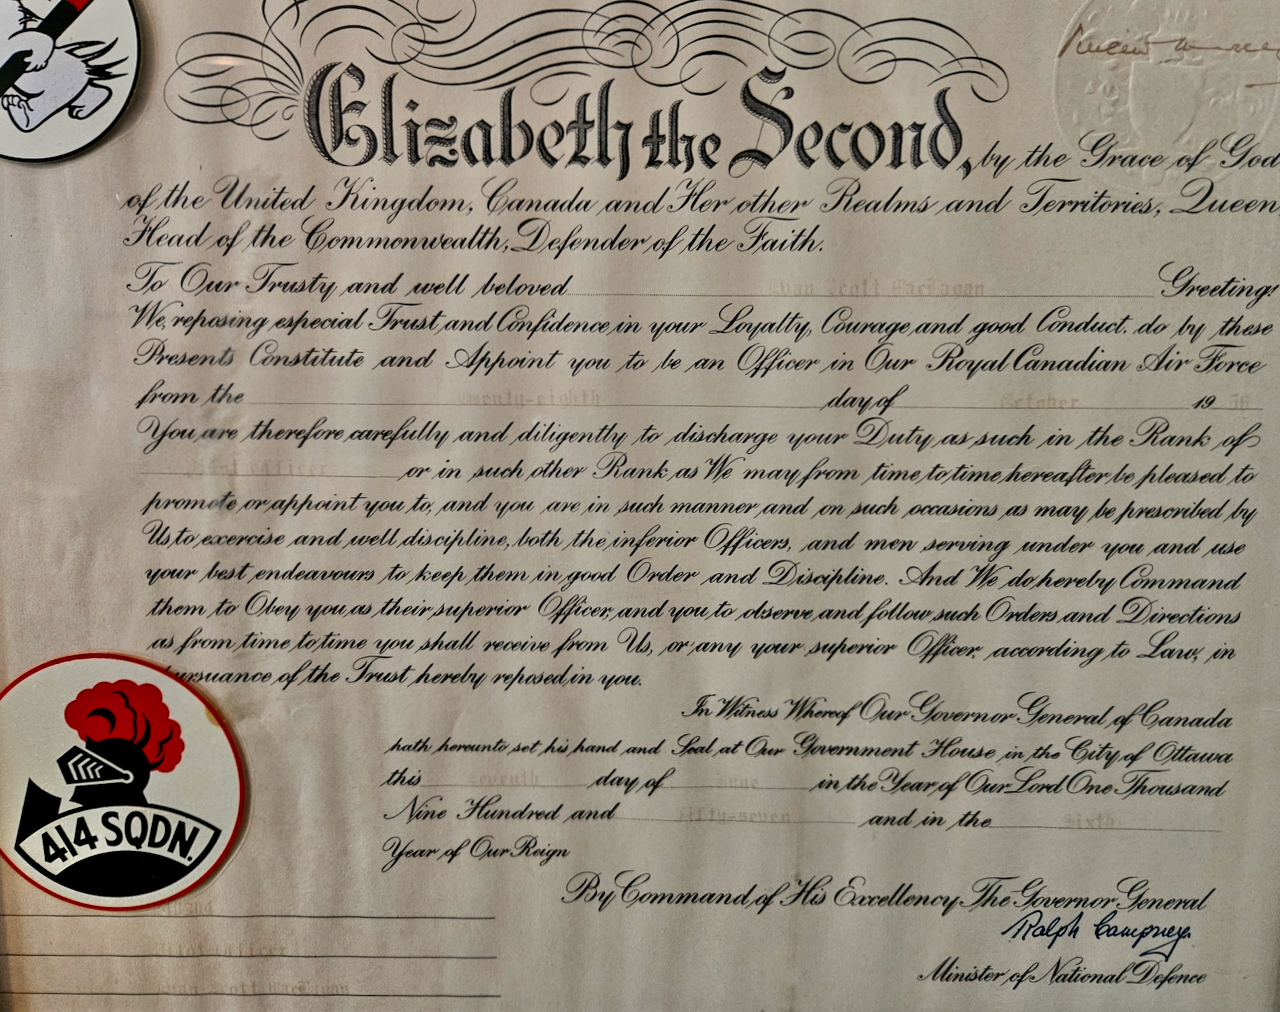 Elizabeth the Second, by the Grace of God
of the United Kingdom, Canada and Her other Realms and Territories, Queen
Head of the Commonwealth, Defender of the Faith.
To Our Trusty and well beloved Evan Scott MacLagan Greeting!
We, reposing especial Trust and Confidence in your Loyalty, Courage, and good Conduct. do by these
Presents Constitute and Appoint you to be an Officer in Our Royal Canadian Air Force
from the twenty-eighth day of October 19 56
You are therefore carefully and diligently to discharge your Duty as such in the Rank of
Pilot Officer or in such other Rank as We may from time to time hereafter be pleased to
promote or appoint you to, and you are in such manner and on such occasions as may be prescribed by
Us to exercise and well discipline, both the inferior Officers, and men serving under you and use
your best endeavours to keep them in good Order and Discipline. And We do hereby Command
them to Obey you as their superior Officer, and you to observe and follow such Orders and Directions
as from time to time you shall receive from Us, or any your superior Officer, according to Law, in
pursuance of the Trust hereby reposed in you.
In Witness Whereof Our Governor General of Canada
hath hereunto set his hand and Seal at Our Government House in the City of Ottawa
this seventh day of June in the Year of Our Lord One Thousand
Nine Hundred and fifty-seven and in the Sixth
Year of Our Reign
By Command of His Excellency The Governor General
Ralph Campney
Minister of National Defence
414 SQDN.
Pilot Officer
Evan Scott MacLagan